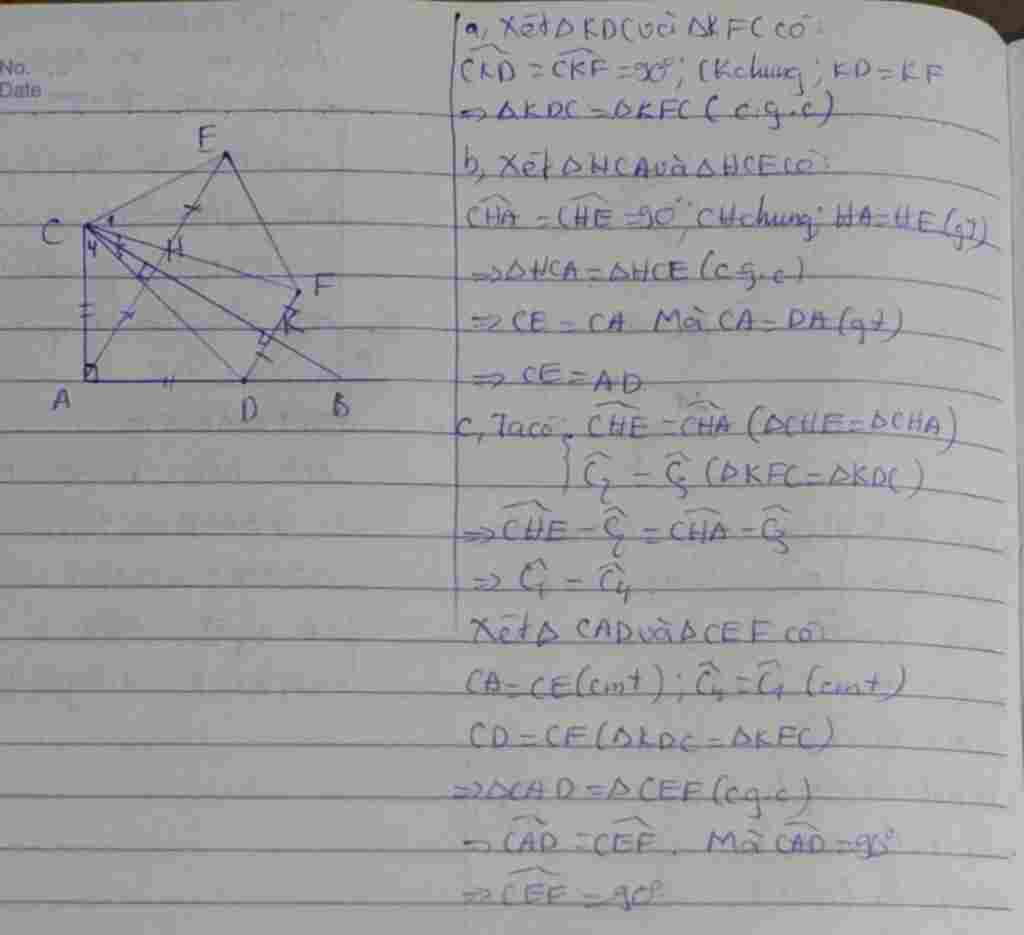 No.
Date
E
C
1
4
H
F
K
A
D
B
a, Xét ΔKDC và ΔKFC có:
CKD^ = CKF^ = 90°; CK chung; KD = KF
⇒ ΔKDC = ΔKFC (c.g.c)
b, Xét ΔHCA và ΔHCE có:
CHA^ = CHE^ = 90°; CH chung; HA = HE (gt)
⇒ ΔHCA = ΔHCE (c.g.c)
⇒ CE = CA. Mà CA = DA (gt)
⇒ CE = AD
c, Ta có: CHE^ = CHA^ (ΔCHE = ΔCHA)
C2^ = C3^ (ΔKFC = ΔKDC)
⇒ CHE^ - C2^ = CHA^ - C3^
⇒ C1^ = C4^
Xét Δ CAD và ΔCEF có:
CA = CE (cmt); C4^ = C1^ (cmt)
CD = CF (ΔKDC = ΔKFC)
⇒ ΔCAD = ΔCEF (c.g.c)
⇒ CAD^ = CEF^. Mà CAD^ = 90°
⇒ CEF^ = 90°